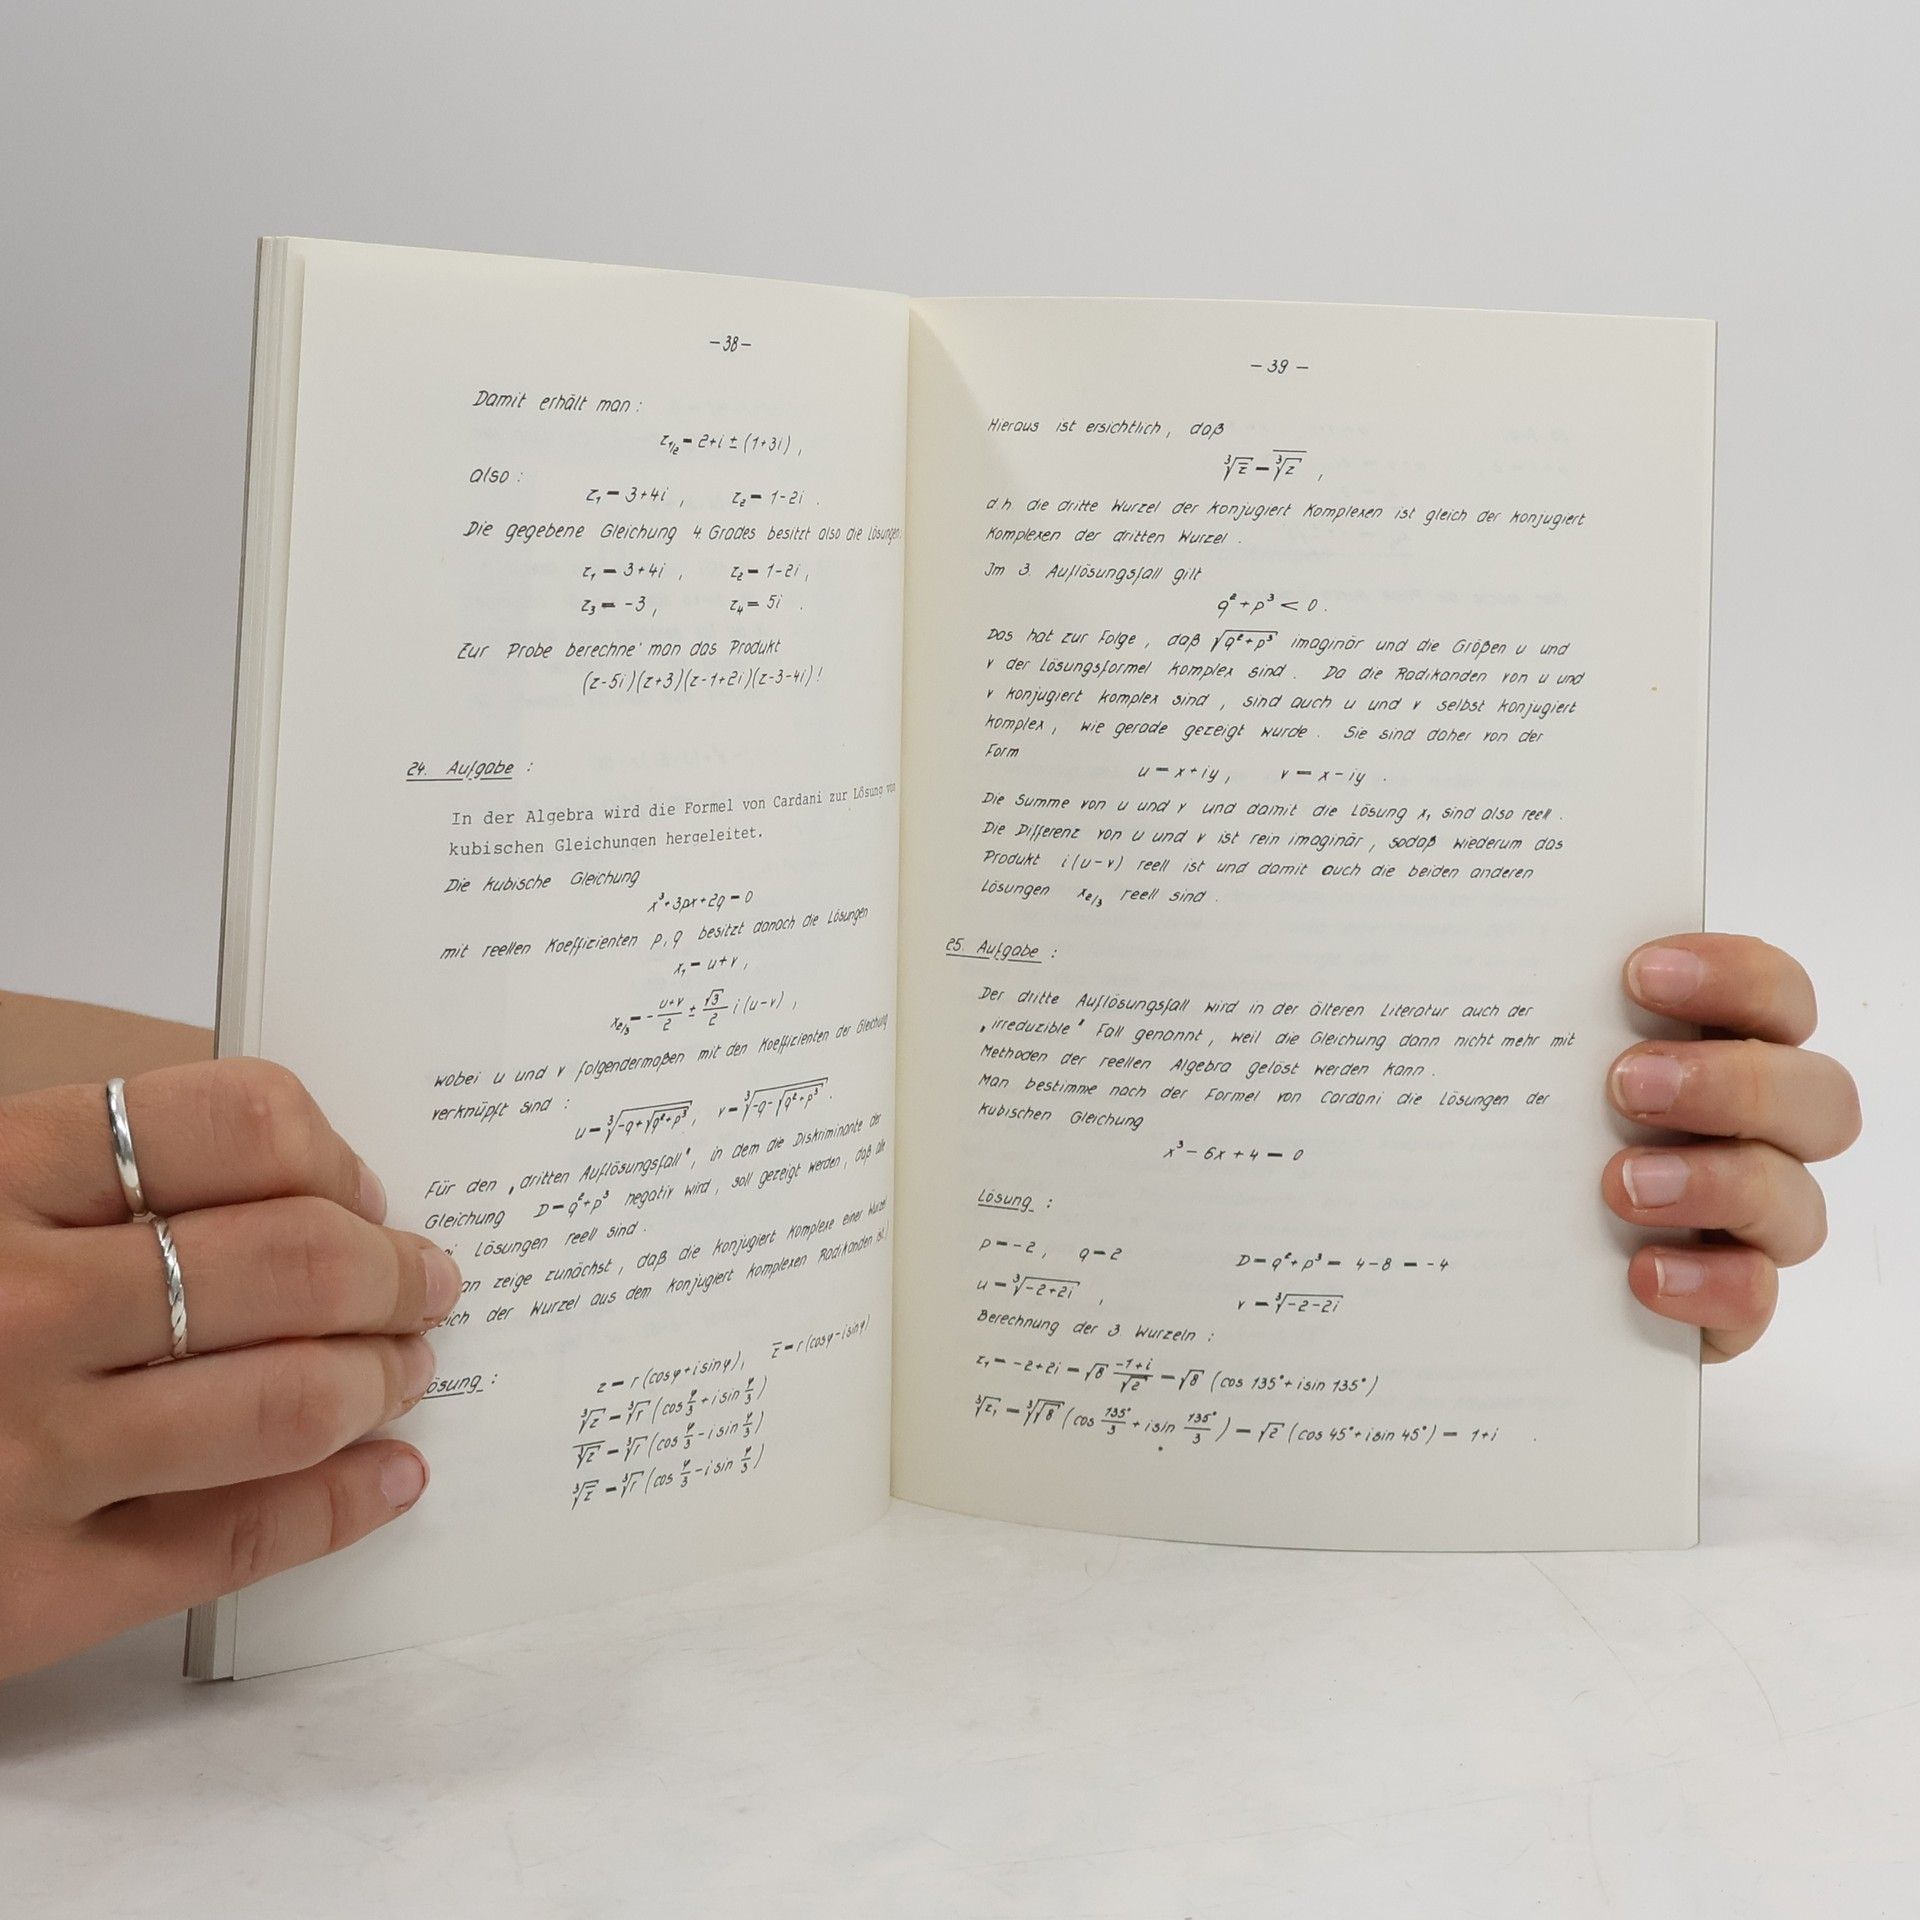 -38-
Damit erhält man :
z₁/₂ = 2+i ± (1+3i) ,
also :
z₁ = 3+4i , z₂ = 1-2i .
Die gegebene Gleichung 4. Grades besitzt also die Lösungen:
z₁ = 3+4i , z₂ = 1-2i ,
z₃ = -3 , z₄ = 5i .
Zur Probe berechne man das Produkt
(z-5i)(z+3)(z-1+2i)(z-3-4i) !
24. Aufgabe :
In der Algebra wird die Formel von Cardani zur Lösung von
kubischen Gleichungen hergeleitet.
Die kubische Gleichung
x³+3px+2q = 0
mit reellen Koeffizienten p, q besitzt danach die Lösungen
x₁ = u+v ,
x₂/₃ = - (u+v)/2 ± √3/2 i (u-v) ,
wobei u und v folgendermaßen mit den Koeffizienten der Gleichung
verknüpft sind :
u = ∛(-q+√(q²+p³)) , v = ∛(-q-√(q²+p³)) .
Für den „dritten Auflösungsfall", in dem die Diskriminante der
Gleichung D = q²+p³ negativ wird, soll gezeigt werden, daß alle
Lösungen reell sind .
zeige zunächst, daß die konjugiert Komplexe einer Wurzel
der Wurzel aus dem konjugiert komplexen Radikanden ist !)
ösung :
z = r (cosφ+isinφ) , z̅ = r (cosφ-isinφ)
∛z = ∛r (cos φ/3 + i sin φ/3)
∛z̅ = ∛r (cos φ/3 - i sin φ/3)
∛z̅ = ∛r (cos φ/3 - i sin φ/3)
- 39 -
Hieraus ist ersichtlich, daß
∛z̅ = ∛z̅ ,
d.h. die dritte Wurzel der konjugiert Komplexen ist gleich der konjugiert
Komplexen der dritten Wurzel .
Im 3. Auflösungsfall gilt
q²+p³ < 0 .
Das hat zur Folge, daß √(q²+p³) imaginär und die Größen u und
v der Lösungsformel komplex sind . Da die Radikanden von u und
v konjugiert komplex sind , sind auch u und v selbst konjugiert
komplex, wie gerade gezeigt wurde . Sie sind daher von der
Form
u = x+iy , v = x-iy .
Die Summe von u und v und damit die Lösung x₁ sind also reell .
Die Differenz von u und v ist rein imaginär, sodaß wiederum das
Produkt i(u-v) reell ist und damit auch die beiden anderen
Lösungen x₂/₃ reell sind .
25. Aufgabe :
Der dritte Auflösungsfall wird in der älteren Literatur auch der
„irreduzible" Fall genannt, weil die Gleichung dann nicht mehr mit
Methoden der reellen Algebra gelöst werden kann .
Man bestimme nach der Formel von Cardani die Lösungen der
kubischen Gleichung
x³ - 6x + 4 = 0
Lösung :
p = -2 , q = 2 D = q²+p³ = 4-8 = -4
u = ∛(-2+2i) , v = ∛(-2-2i)
Berechnung der 3. Wurzeln :
z₁ = -2+2i = √8 (-1+i)/√2 = √8 (cos 135°+ isin 135°)
∛z₁ = ∛√8 (cos 135°/3 + isin 135°/3) = √2 (cos 45°+ isin 45°) = 1+i .